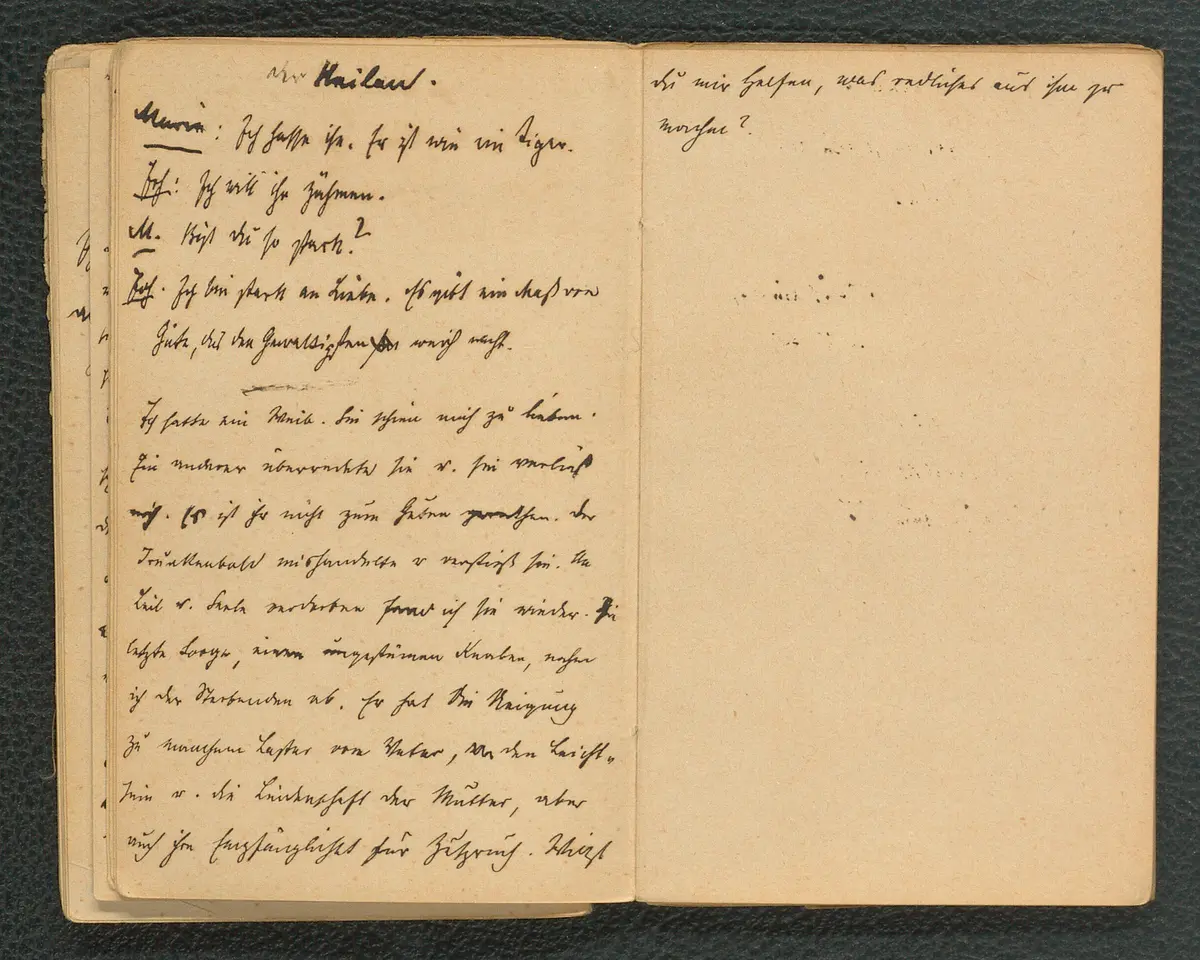 der Heiland.
Marie: Ich hasse ihn. Er ist wie ein Tiger.
Joh: Ich will ihn zähmen.
M. Bist du so stark?
Joh. Ich bin stark an Liebe. Es gibt ein Maß von
Güte, das den Gewaltigsten weich macht.
Ich hatte ein Weib. Sie schien mich zu lieben.
Ein anderer überredete sie u. sie verließ
mich. Es ist ihr nicht zum Guten gerathen. Der
Trunkenbold mishandelte u verstieß sie. An
Leib u. Seele verdorben fand ich sie wieder. Die
letzte Sorge, einen ungestümen Knaben, nahm
ich der Sterbenden ab. Er hat die Neigung
zu manchem Laster vom Vater, den Leicht-
sinn u. die Leidenschaft der Mutter, aber
auch ihre Empfänglichkt für Zuspruch. Willst
du mir helfen, was redliches aus ihm zu
machen?